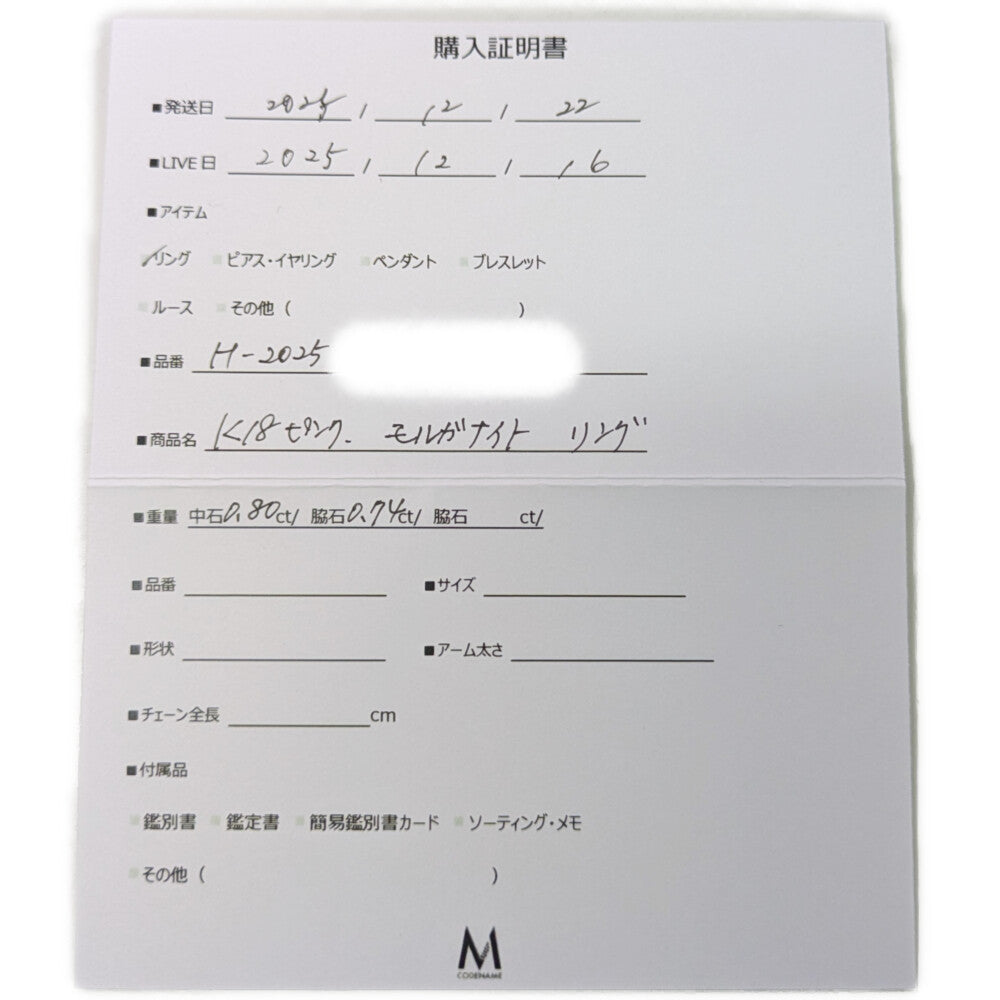 購入証明書
■発送日 2025 / 12 / 22
■LIVE日 2025 / 12 / 16
■アイテム
リング ピアス・イヤリング ペンダント ブレスレット
ルース その他 ( )
■品番 H-2025
■商品名 K18ピンク. モルガナイト リング
■重量 中石0.80ct/ 脇石0.74ct/ 脇石 ct/
■品番 ■サイズ
■形状 ■アーム太さ
■チェーン全長 cm
■付属品
鑑別書 鑑定書 簡易鑑別書カード ソーティング・メモ
その他 ( )
M
CODENAME